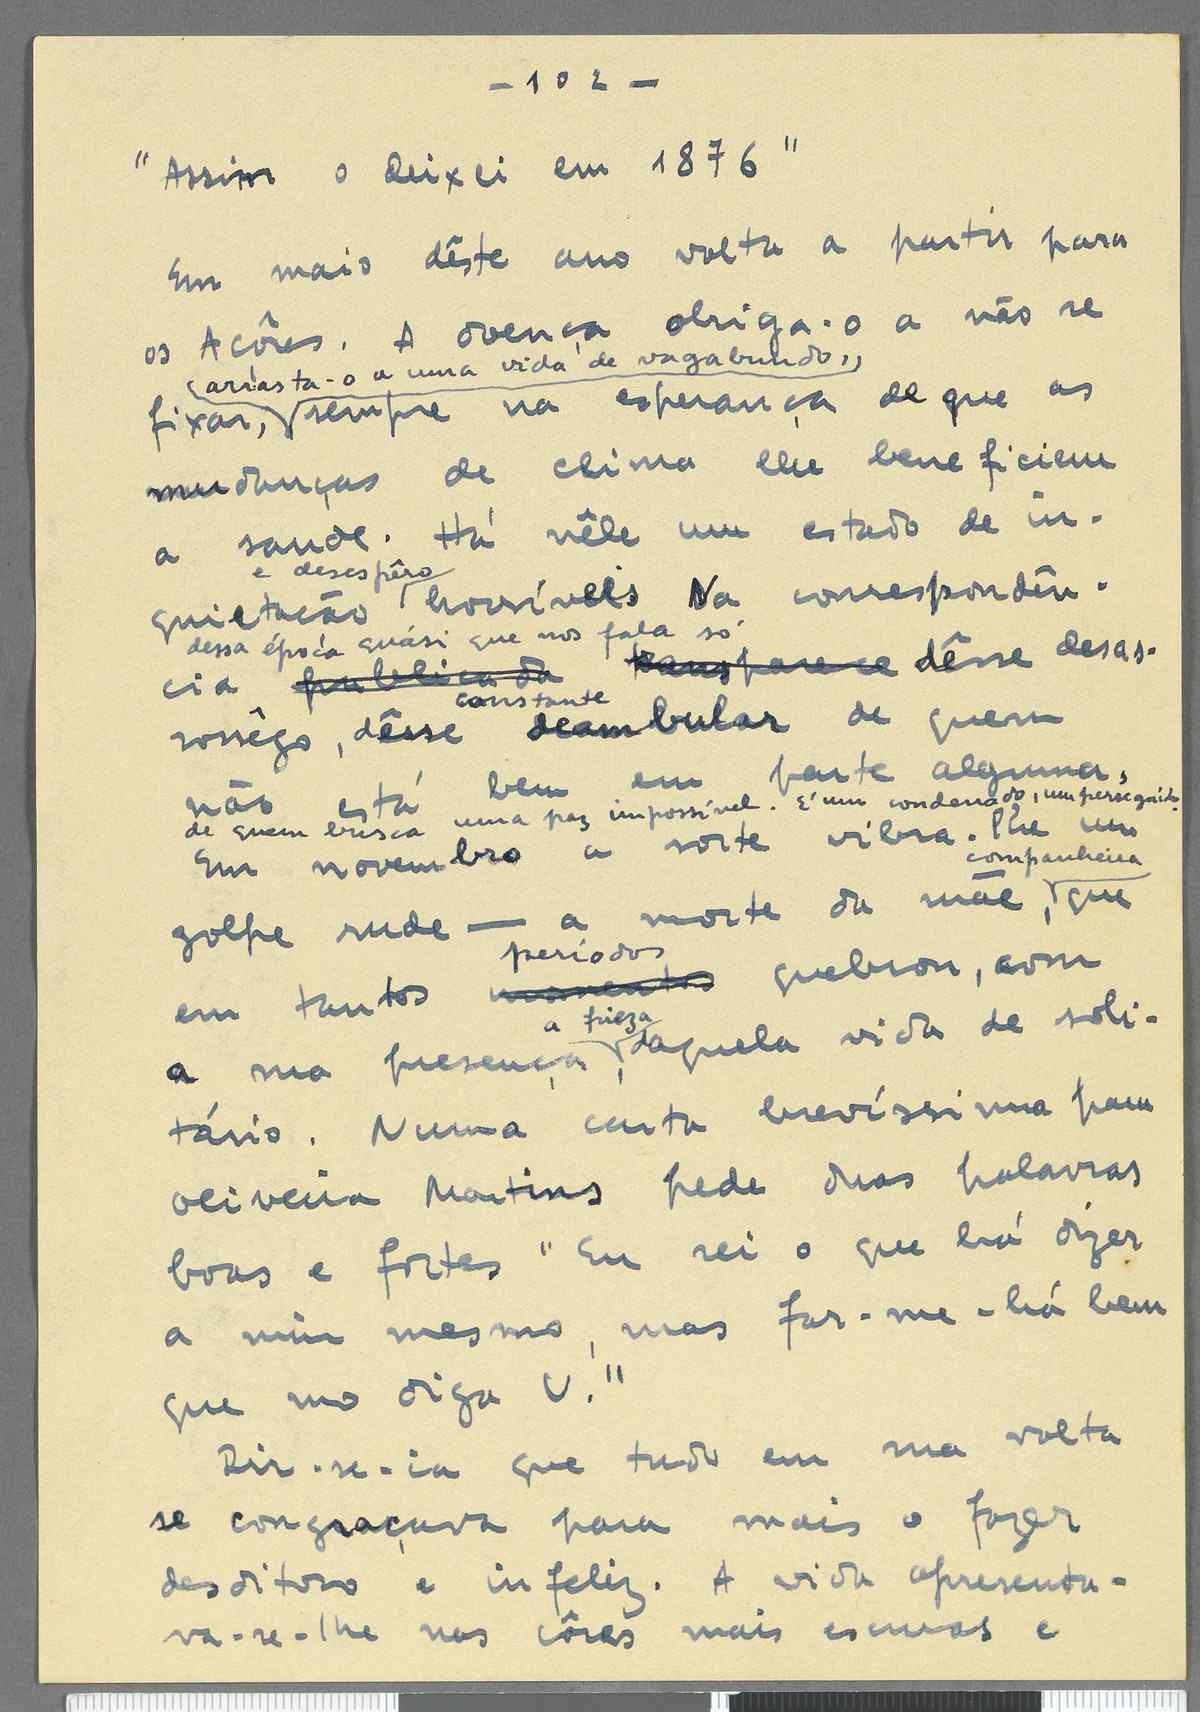 - 102 -
"Assim o deixei em 1876"
Em maio dêste ano volta a partir para
os Açôres. A doença obriga-o a não se
arrasta-o a uma vida de vagabundo,
fixar, sempre na esperança de que as
mudanças de clima lhe beneficiem
a saude. Há nêle um estado de in-
e desespêro
quietação horríveis Na correspondên-
dessa época quási que nos fala só
cia publicada transparece dêsse desas-
constante
sossêgo, dêsse deambular de quem
não está bem em parte alguma,
de quem busca uma paz impossível. É um condenado, um perseguido.
Em novembro a sorte vibra-lhe um
companheira
golpe rude — a morte da mãe, que
períodos
em tantos momentos quebrou, com
a frieza
a sua presença, daquela vida de soli-
tário. Numa carta brevíssima para
Oliveira Martins pede duas palavras
boas e fortes "Eu sei o que há dizer
a mim mesmo, mas far-me-há bem
que mo diga V."
Dir-se-ia que tudo em sua volta
se congraçava para mais o fazer
desditoso e infeliz. A vida apresenta-
va-se-lhe nas côres mais escuras e